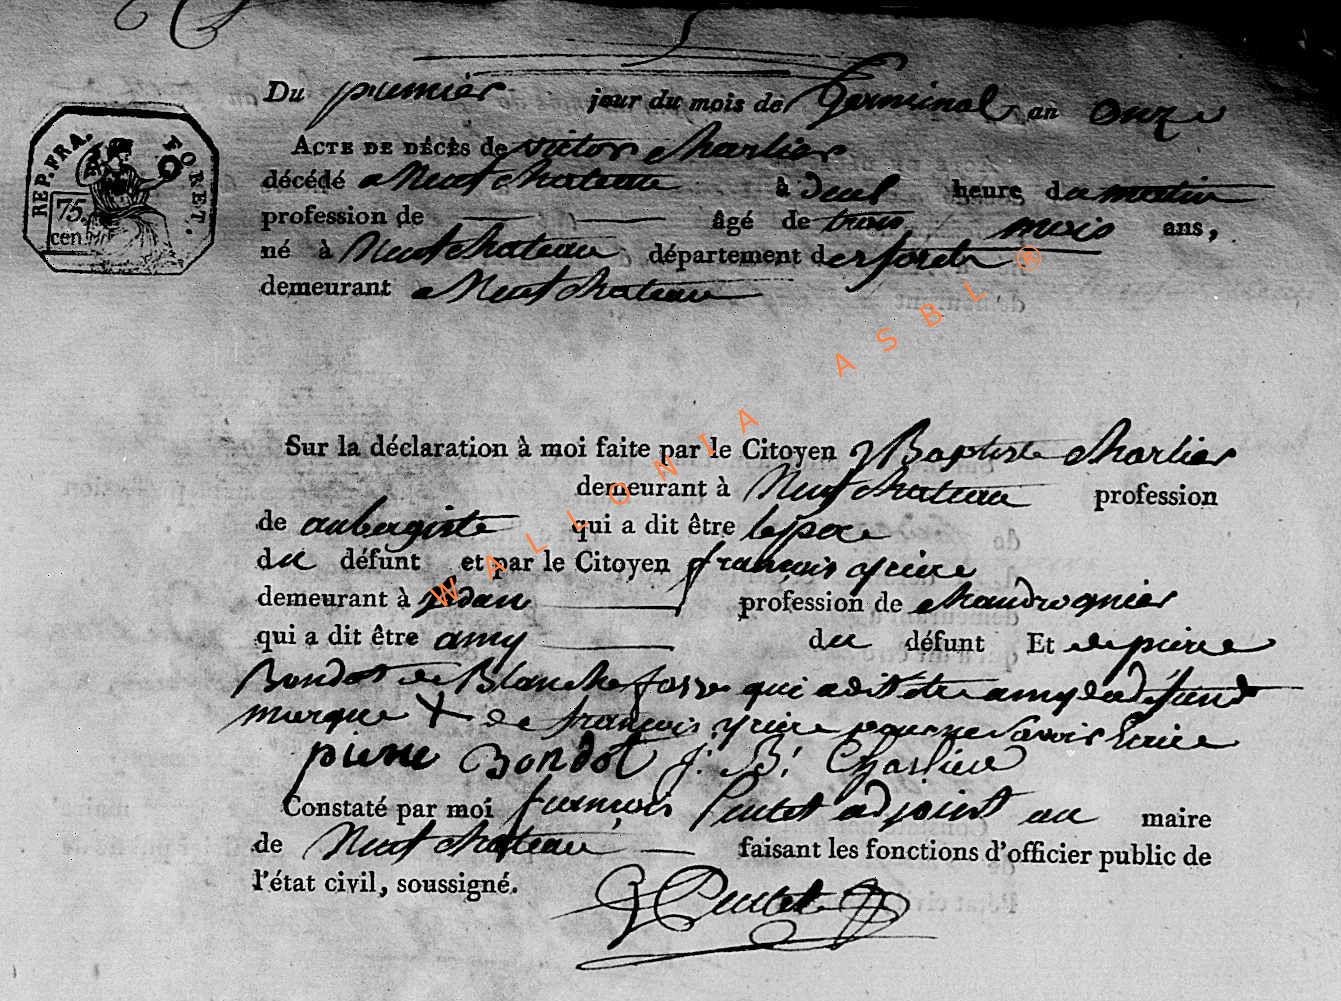 Du premier jour du mois de Germinal an onze
REP. FRA. FORET.
75. cen.
ACTE DE DÉCÈS de victor charlier
décédé a Neufchateau à deux heure du matin
profession de âgé de trois mois ans,
né à Neufchateau département des forets
demeurant a Neufchateau
Sur la déclaration à moi faite par le Citoyen J Baptiste charlier
demeurant à Neufchateau profession
de aubergiste qui a dit être le pere
du défunt et par le Citoyen françois
demeurant à sedan profession de chaudronnier
qui a dit être amy du défunt Et de pierre
Bondot de Blanchefosse qui a dit etre amy du defund
marque + de françois pour ne savoir Ecrire
pierre Bondot J. B. Charlier
Constaté par moi françois adjoint au maire
de Neufchateau faisant les fonctions d'officier public de
l'état civil, soussigné.
WALLONIA ASBL ®